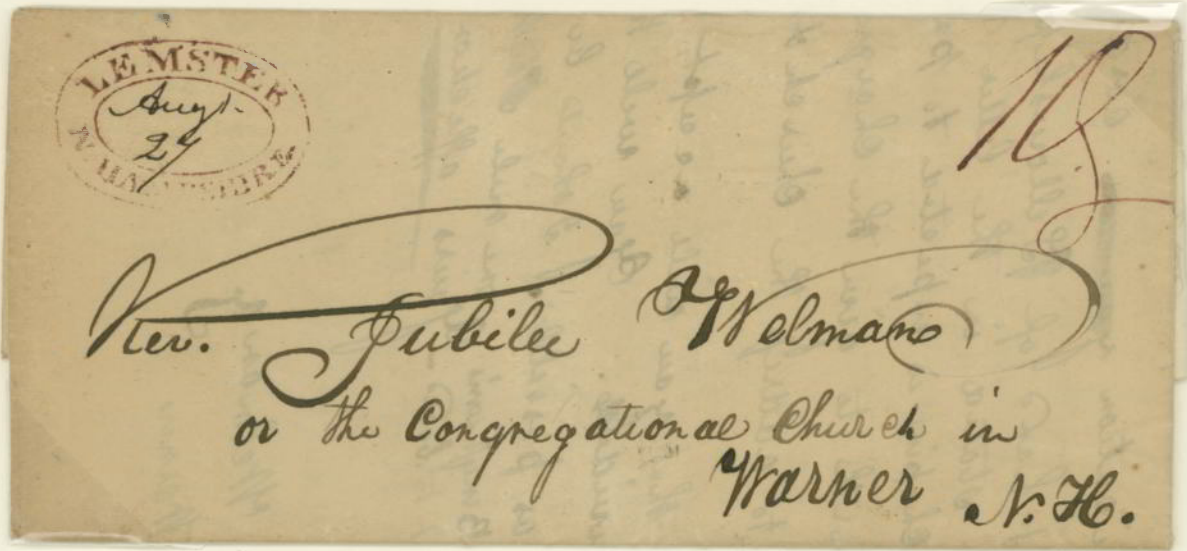 LEMSTER
Augt.
27
N. HAMPSHIRE
10
Rev. Jubilee Welman
or the Congregational Church in
Warner N. H.